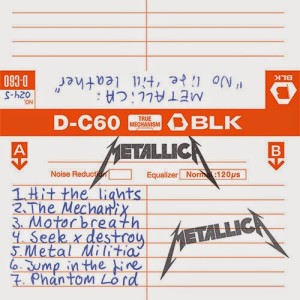 "No life 'till leather"
METALLICA:
D-C60
024-5
NO.
BLK
D-C60
TRUE
MECHANISM
BLK
A
METALLICA
B
Noise Reduction
Equalizer
Normal:120µs
1. Hit the lights
2. The Mechanix
3. Motorbreath
4. Seek x destroy
5. Metal Militia
6. Jump in the fire
7. Phantom Lord
METALLICA